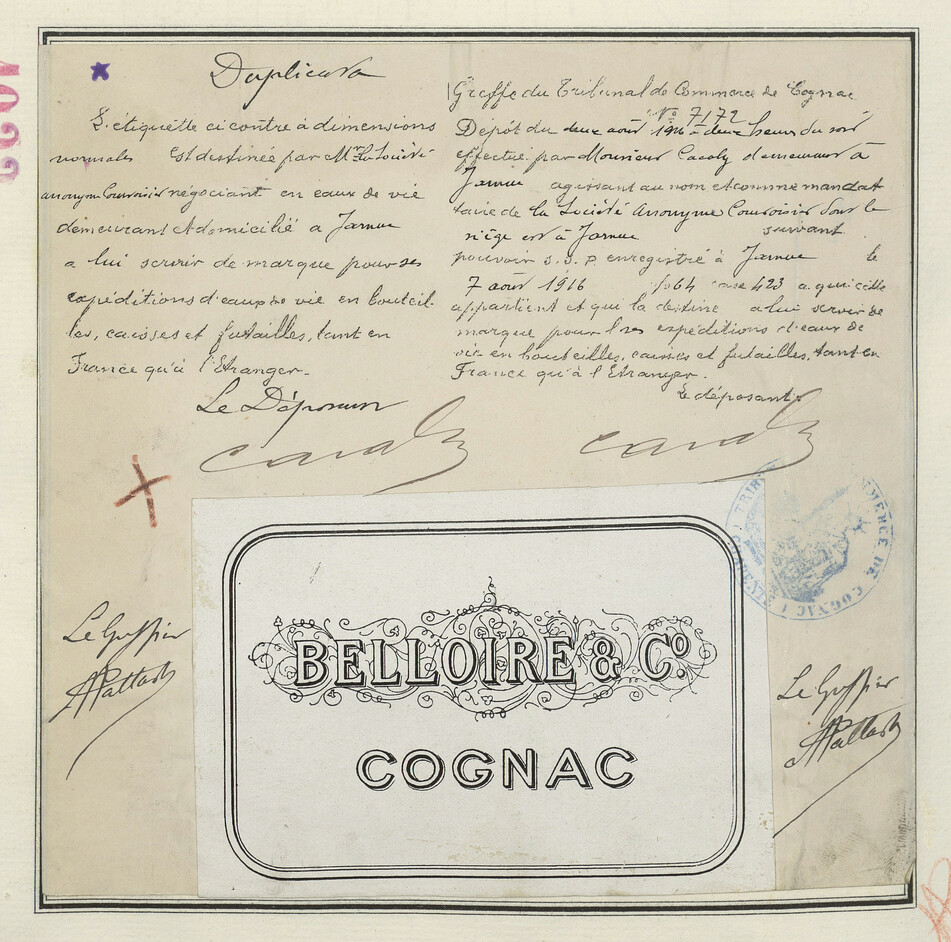 Duplicata
L'étiquette ci contre à dimensions
normales est destinée par Mrs la Société
anonyme Courvoisier négociant en eaux de vie
demeurant et domicilié à Jarnac
a lui servir de marque pour ses
expéditions d'eaux de vie en bouteil-
les, caisses et futailles, tant en
France qu'à l'Etranger.
Le Déposant
Greffe du Tribunal de Commerce de Cognac
No 7172
Dépôt du deux août 1916 à deux heures du soir
effectué par Monsieur demeurant à
Jarnac agissant au nom et comme mandat
taire de la Société Anonyme Courvoisier dont le
siège est à Jarnac suivant
pouvoir s.s.p. enregistré à Jarnac le
7 août 1916 fo 64 case 423 a qui cette
appartient et qui la destine a lui servir de
marque pour ses expéditions d'eaux de
vie en bouteilles, caisses et futailles, tant en
France qu'à l'Etranger.
Le déposant
TRIBUNAL DE COMMERCE DE COGNAC
BELLOIRE & Co
COGNAC
Le Greffier
Le Greffier